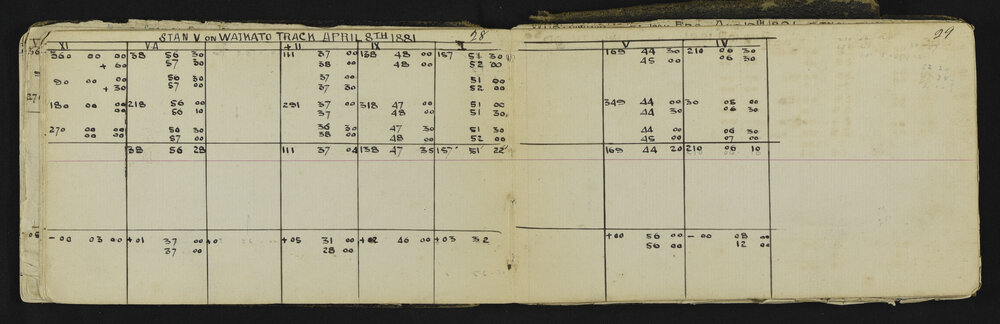 STAN V on WAIKATO TRACK APRIL 8TH 1881 28
XI VA + II IX X
360 00 00 38 56 30 111 37 00 138 48 00 157 51 30
+ 60 57 30 38 00 48 00 52 00
90 00 00 56 30 37 00 51 00
+ 30 57 00 37 30 52 00
180 00 00 218 56 00 291 37 00 318 47 00 51 00
00 00 56 10 37 00 48 00 51 30
270 00 00 56 30 36 30 47 30 51 30
00 00 57 00 38 00 48 00 52 00
38 56 28 111 37 04 138 47 35 157 51 22
- 00 03 00 + 01 37 00 + 05 31 00 + 02 46 00 + 03 32
37 00 28 00
29
V IV
169 44 30 210 06 30
45 00 06 30
349 44 00 30 05 00
44 30 06 30
44 00 06 30
45 00 07 00
169 44 20 210 06 10
+ 00 56 00 - 00 08 00
56 00 12 00